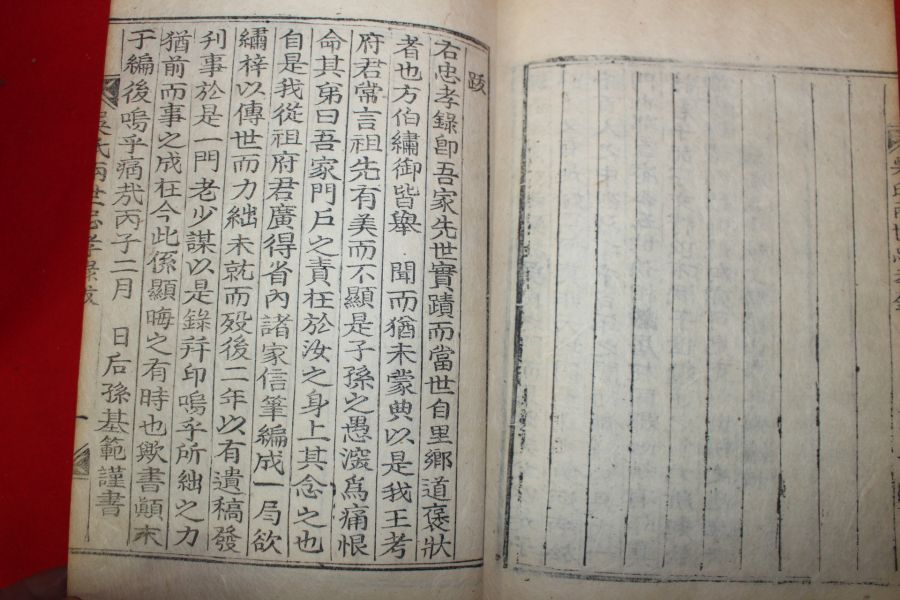 跋
右忠孝錄卽吾家先世實蹟而當世自里鄕道褒狀
者也方伯繡御皆擧 聞而猶未蒙典以是我王考
府君常言祖先有美而不顯是子孫之愚深爲痛恨
命其弟曰吾家門戶之責在於汝之身上其念之也
自是我從祖府君廣得省內諸家信筆編成一局欲
繡梓以傳世而力絀未就而歿後二年以有遺稿發
刋事於是一門老少謀以是錄幷印嗚乎所絀之力
猶前而事之成在今此係顯晦之有時也歟書顚末
于編後嗚乎痛哉丙子二月 日后孫基範謹書
吳氏兩世忠孝錄跋 一